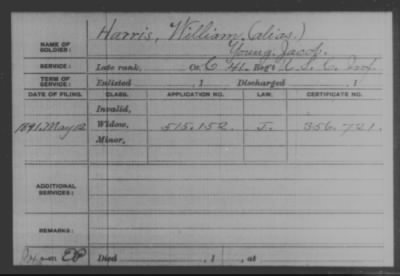 NAME OF SOLDIER: Harris, William, (alias.)
Young, Jacob.
SERVICE: Late rank, Co. C 41. Reg't U.S.C. Inf.
TERM OF SERVICE: Enlisted , 1 Discharged , 1
DATE OF FILING. CLASS. APPLICATION NO. LAW. CERTIFICATE NO.
Invalid,
1891. May 12 Widow, 515.152. J. 356.721.
Minor,
ADDITIONAL SERVICES:
REMARKS:
Died , 1 , at